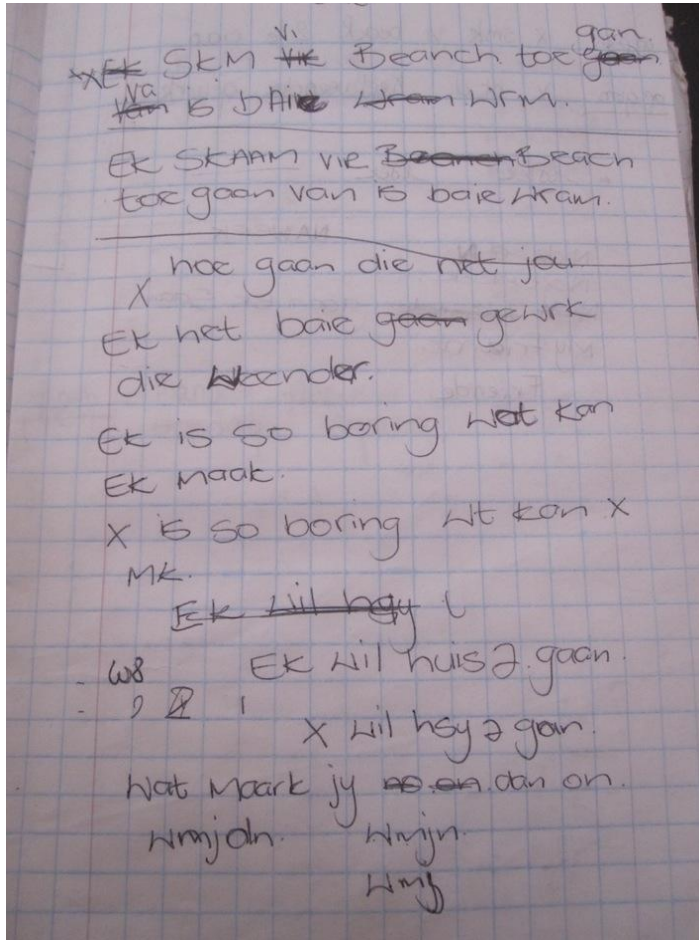 gan.
xxEk SKM vi vik Beanch toe gaan
va
van is bAie wram wrm.
EK SKAAM vie Beanch Beach
toe gaan van is baie wram.
hoe gaan die net jou
X
EK het baie gaan gewrk
die weender.
EK is so boring wat kan
EK maak.
X is so boring wt kan x
MK.
Ek wil hgy (
w8 EK wil huis 2. gaan.
, 2 1
X wil hsy 2 gan.
Wat maark jy no on dan on.
wmjdn. wmjn.
wmj